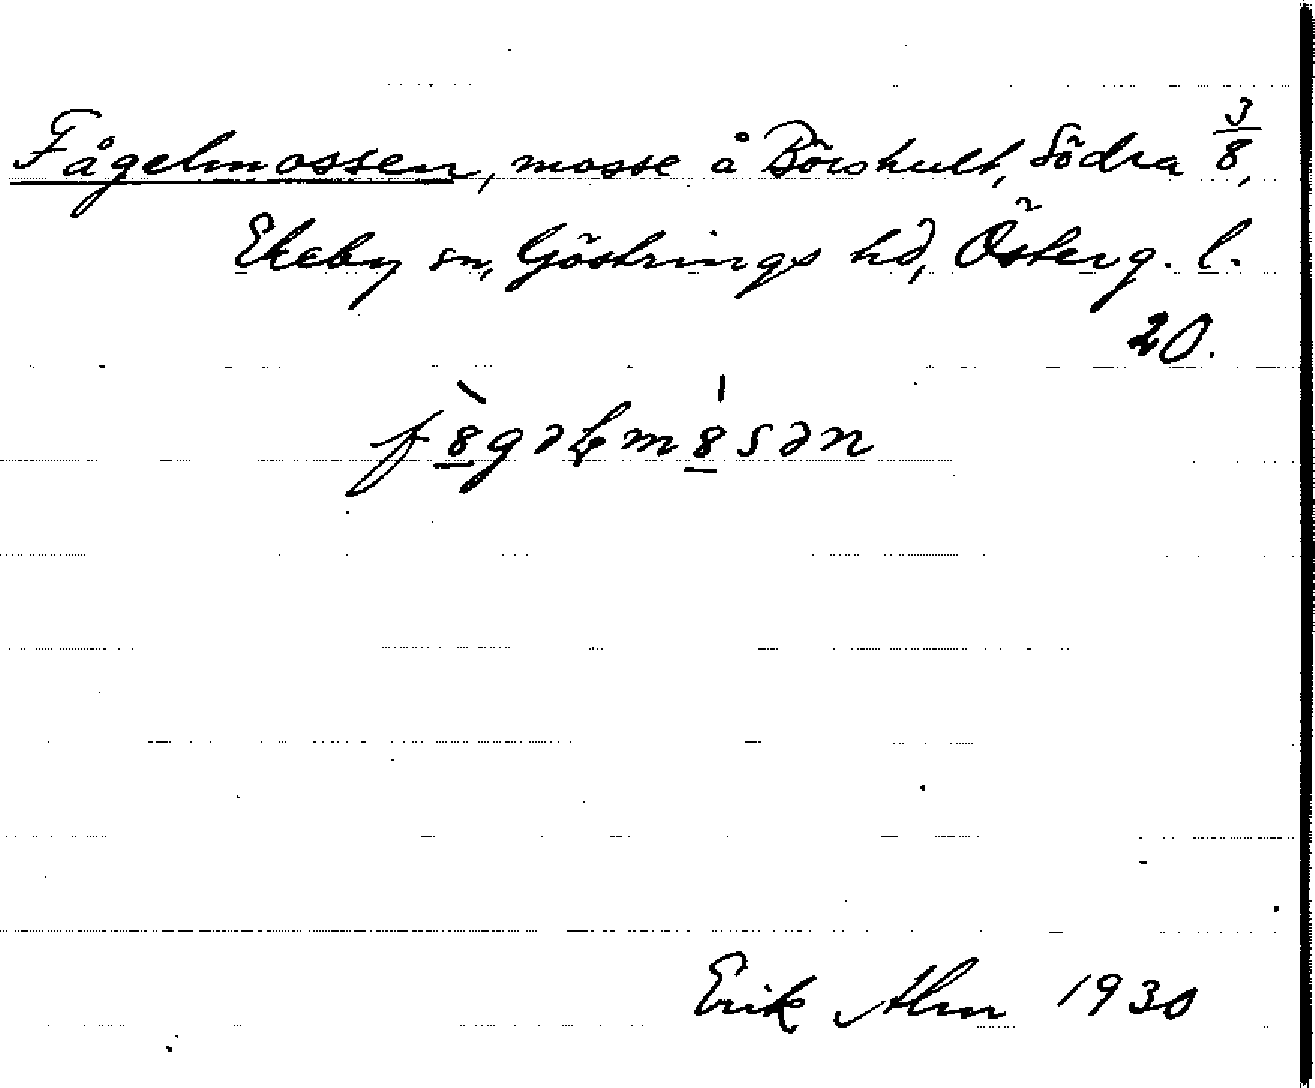 Fågelmossen, mosse å Börshult, Södra 3/8,
Ekeby sn, Göstrings hd, Österg. l.
20.
f8̲̀gəɬm8̲́sən
Erik Alm 1930